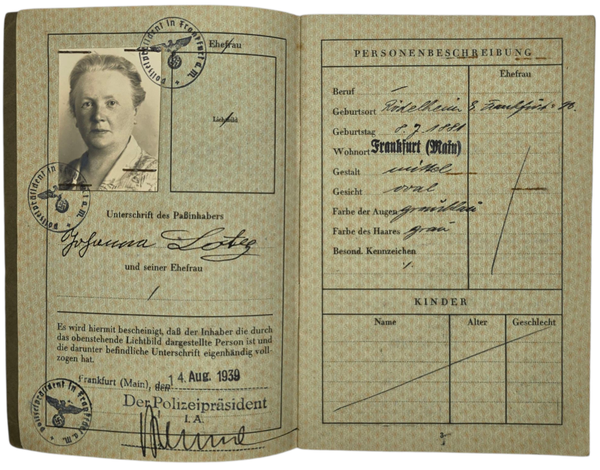 Ehefrau
Polizeipräsident in Frankfurt a.M.
Lichtbild
Polizeipräsident in Frankfurt a.M.
Unterschrift des Paßinhabers
Johanna
und seiner Ehefrau
Es wird hiermit bescheinigt, daß der Inhaber die durch
das obenstehende Lichtbild dargestellte Person ist und
die darunter befindliche Unterschrift eigenhändig voll-
zogen hat.
Frankfurt (Main), den 14. Aug. 1939
Der Polizeipräsident
I.A.
Polizeipräsident in Frankfurt a.M.
PERSONENBESCHREIBUNG
Ehefrau
Beruf –
Geburtsort Rödelheim Frankfurt
Geburtstag 8.7.1881
Wohnort Frankfurt (Main)
Gestalt mittel
Gesicht oval
Farbe der Augen graublau
Farbe des Haares grau
Besond. Kennzeichen
KINDER
Name Alter Geschlecht